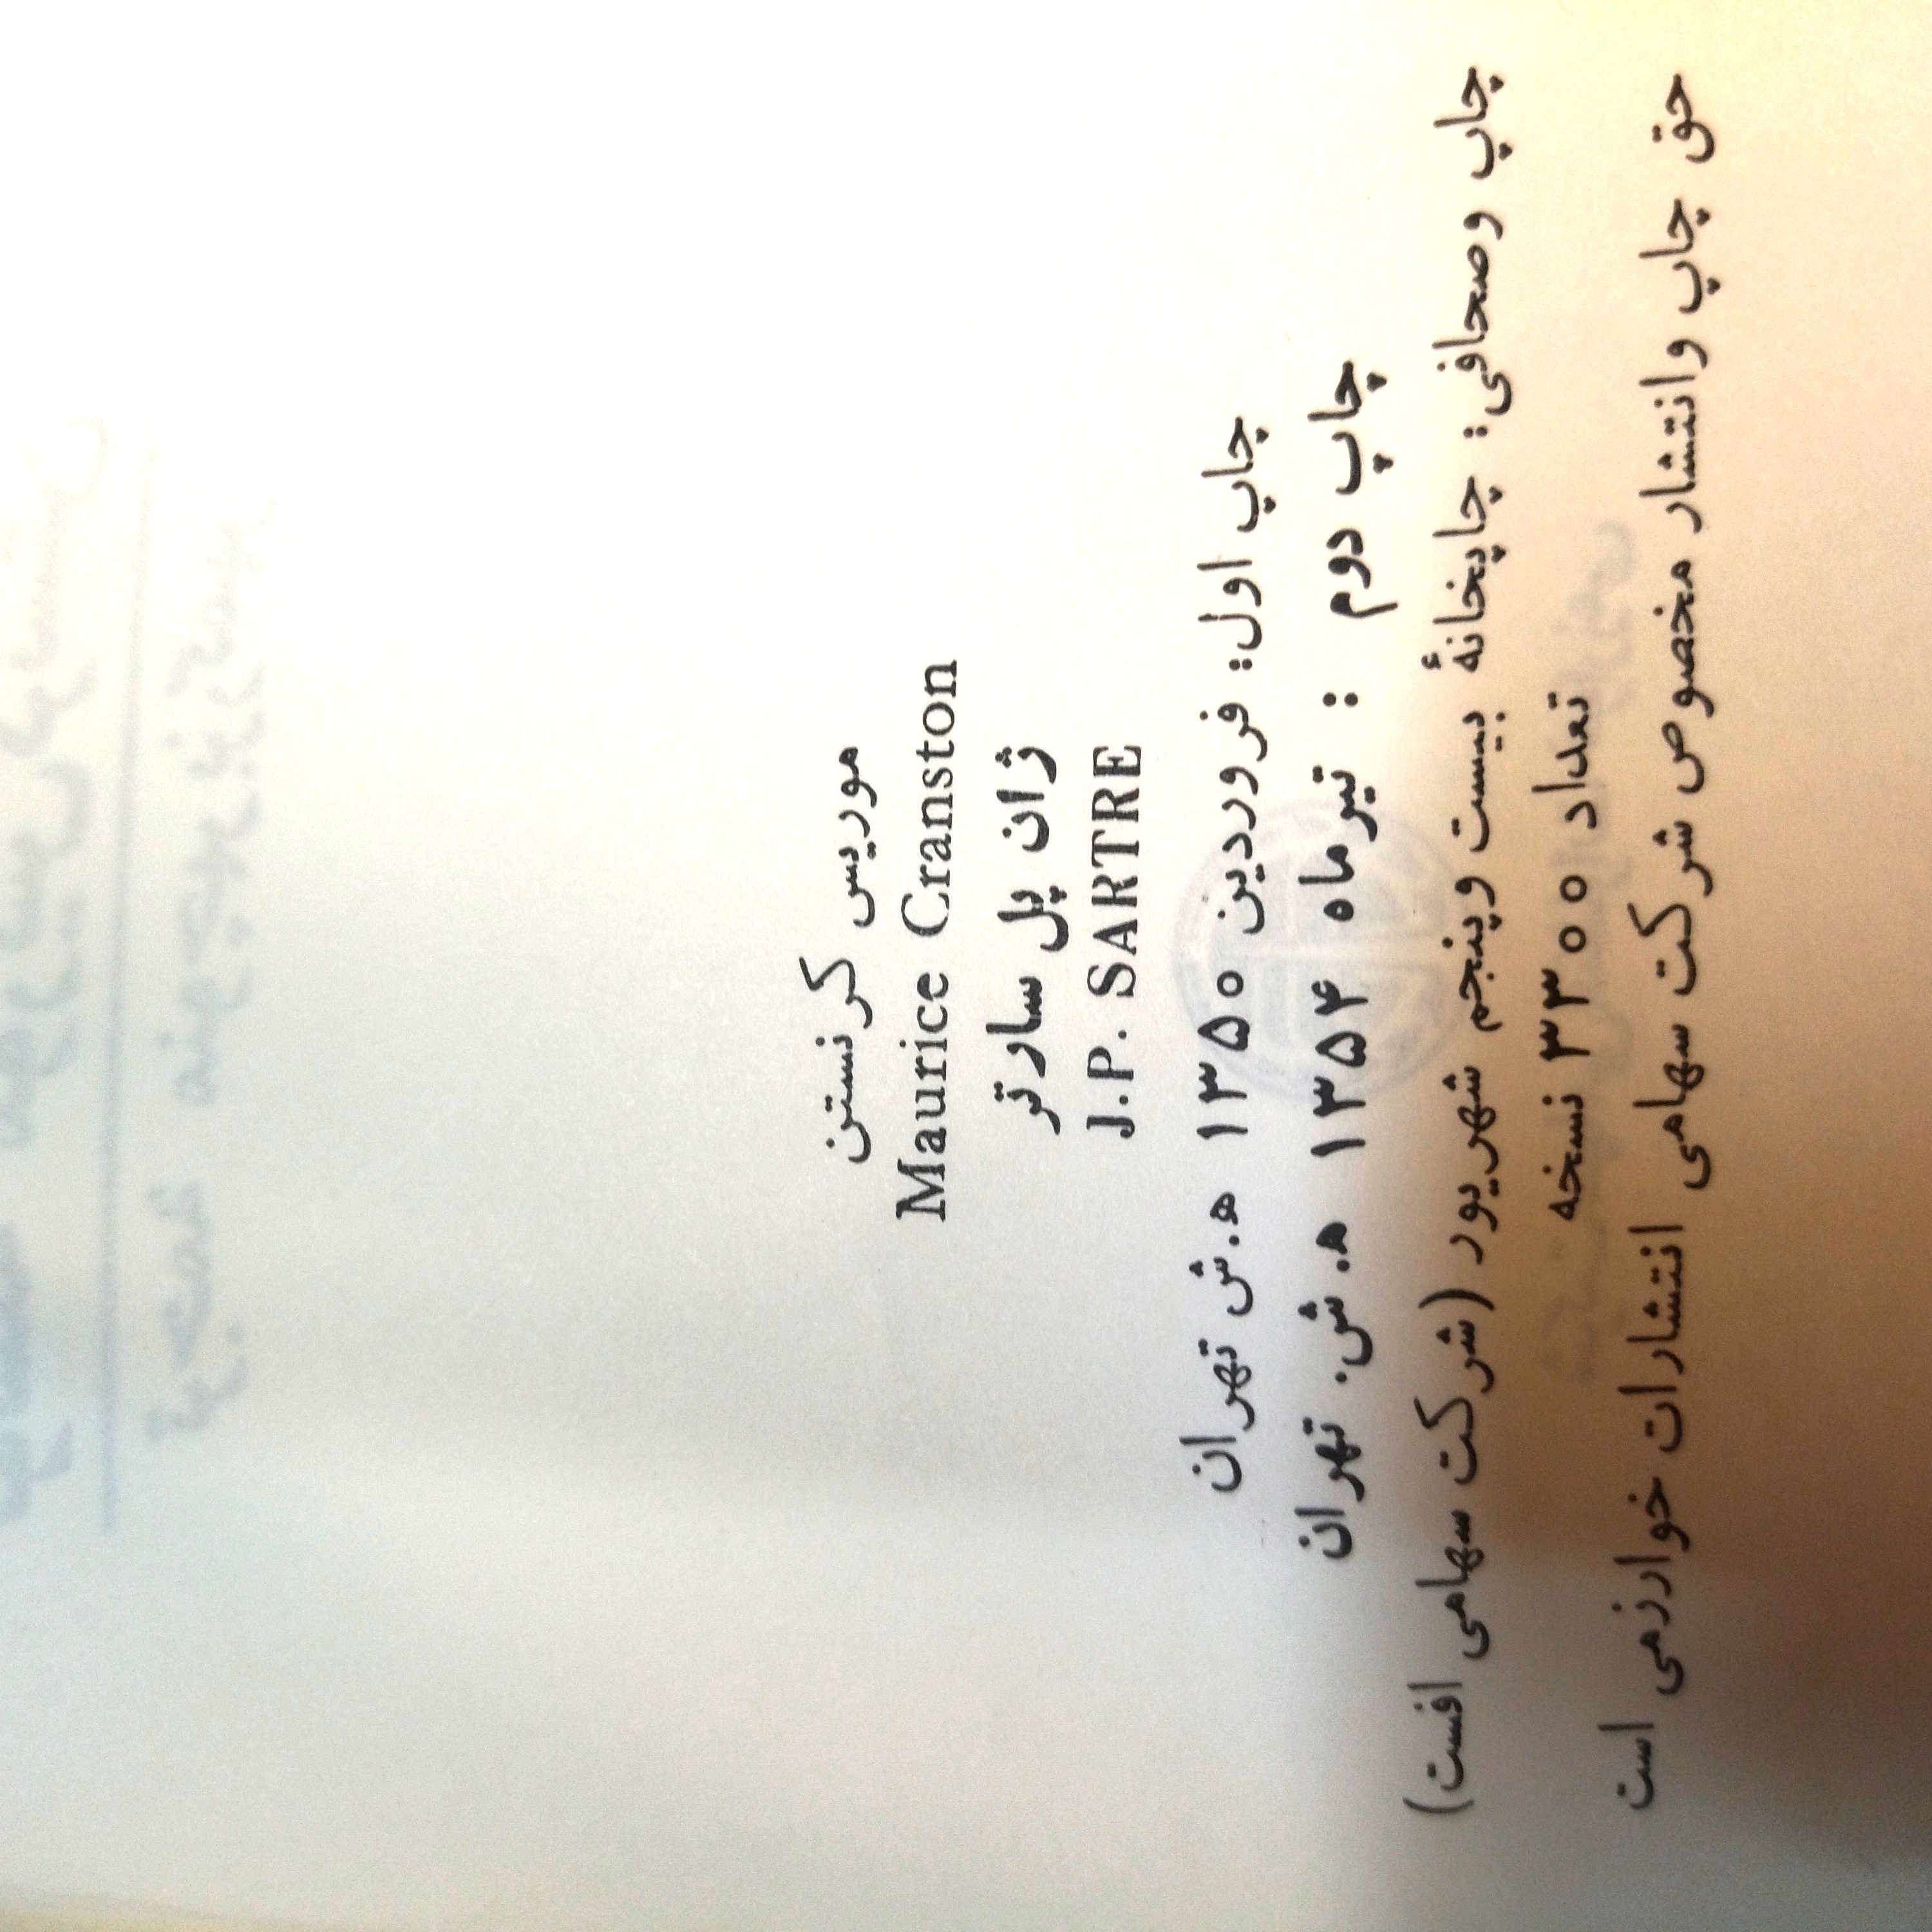 موریس کرنستن
Maurice Cranston
ژان پل سارتر
J.P. SARTRE
چاپ اول: فروردین ۱۳۵۰ ه.ش تهران
چاپ دوم : تیر ماه ۱۳۵۴ ه.ش. تهران
چاپ وصحافی: چاپخانهٔ بیست وپنجم شهریور (شرکت سهامی افست)
تعداد ۳۳۰۰ نسخه
حق چاپ وانتشار مخصوص شرکت سهامی انتشارات خوارزمی است